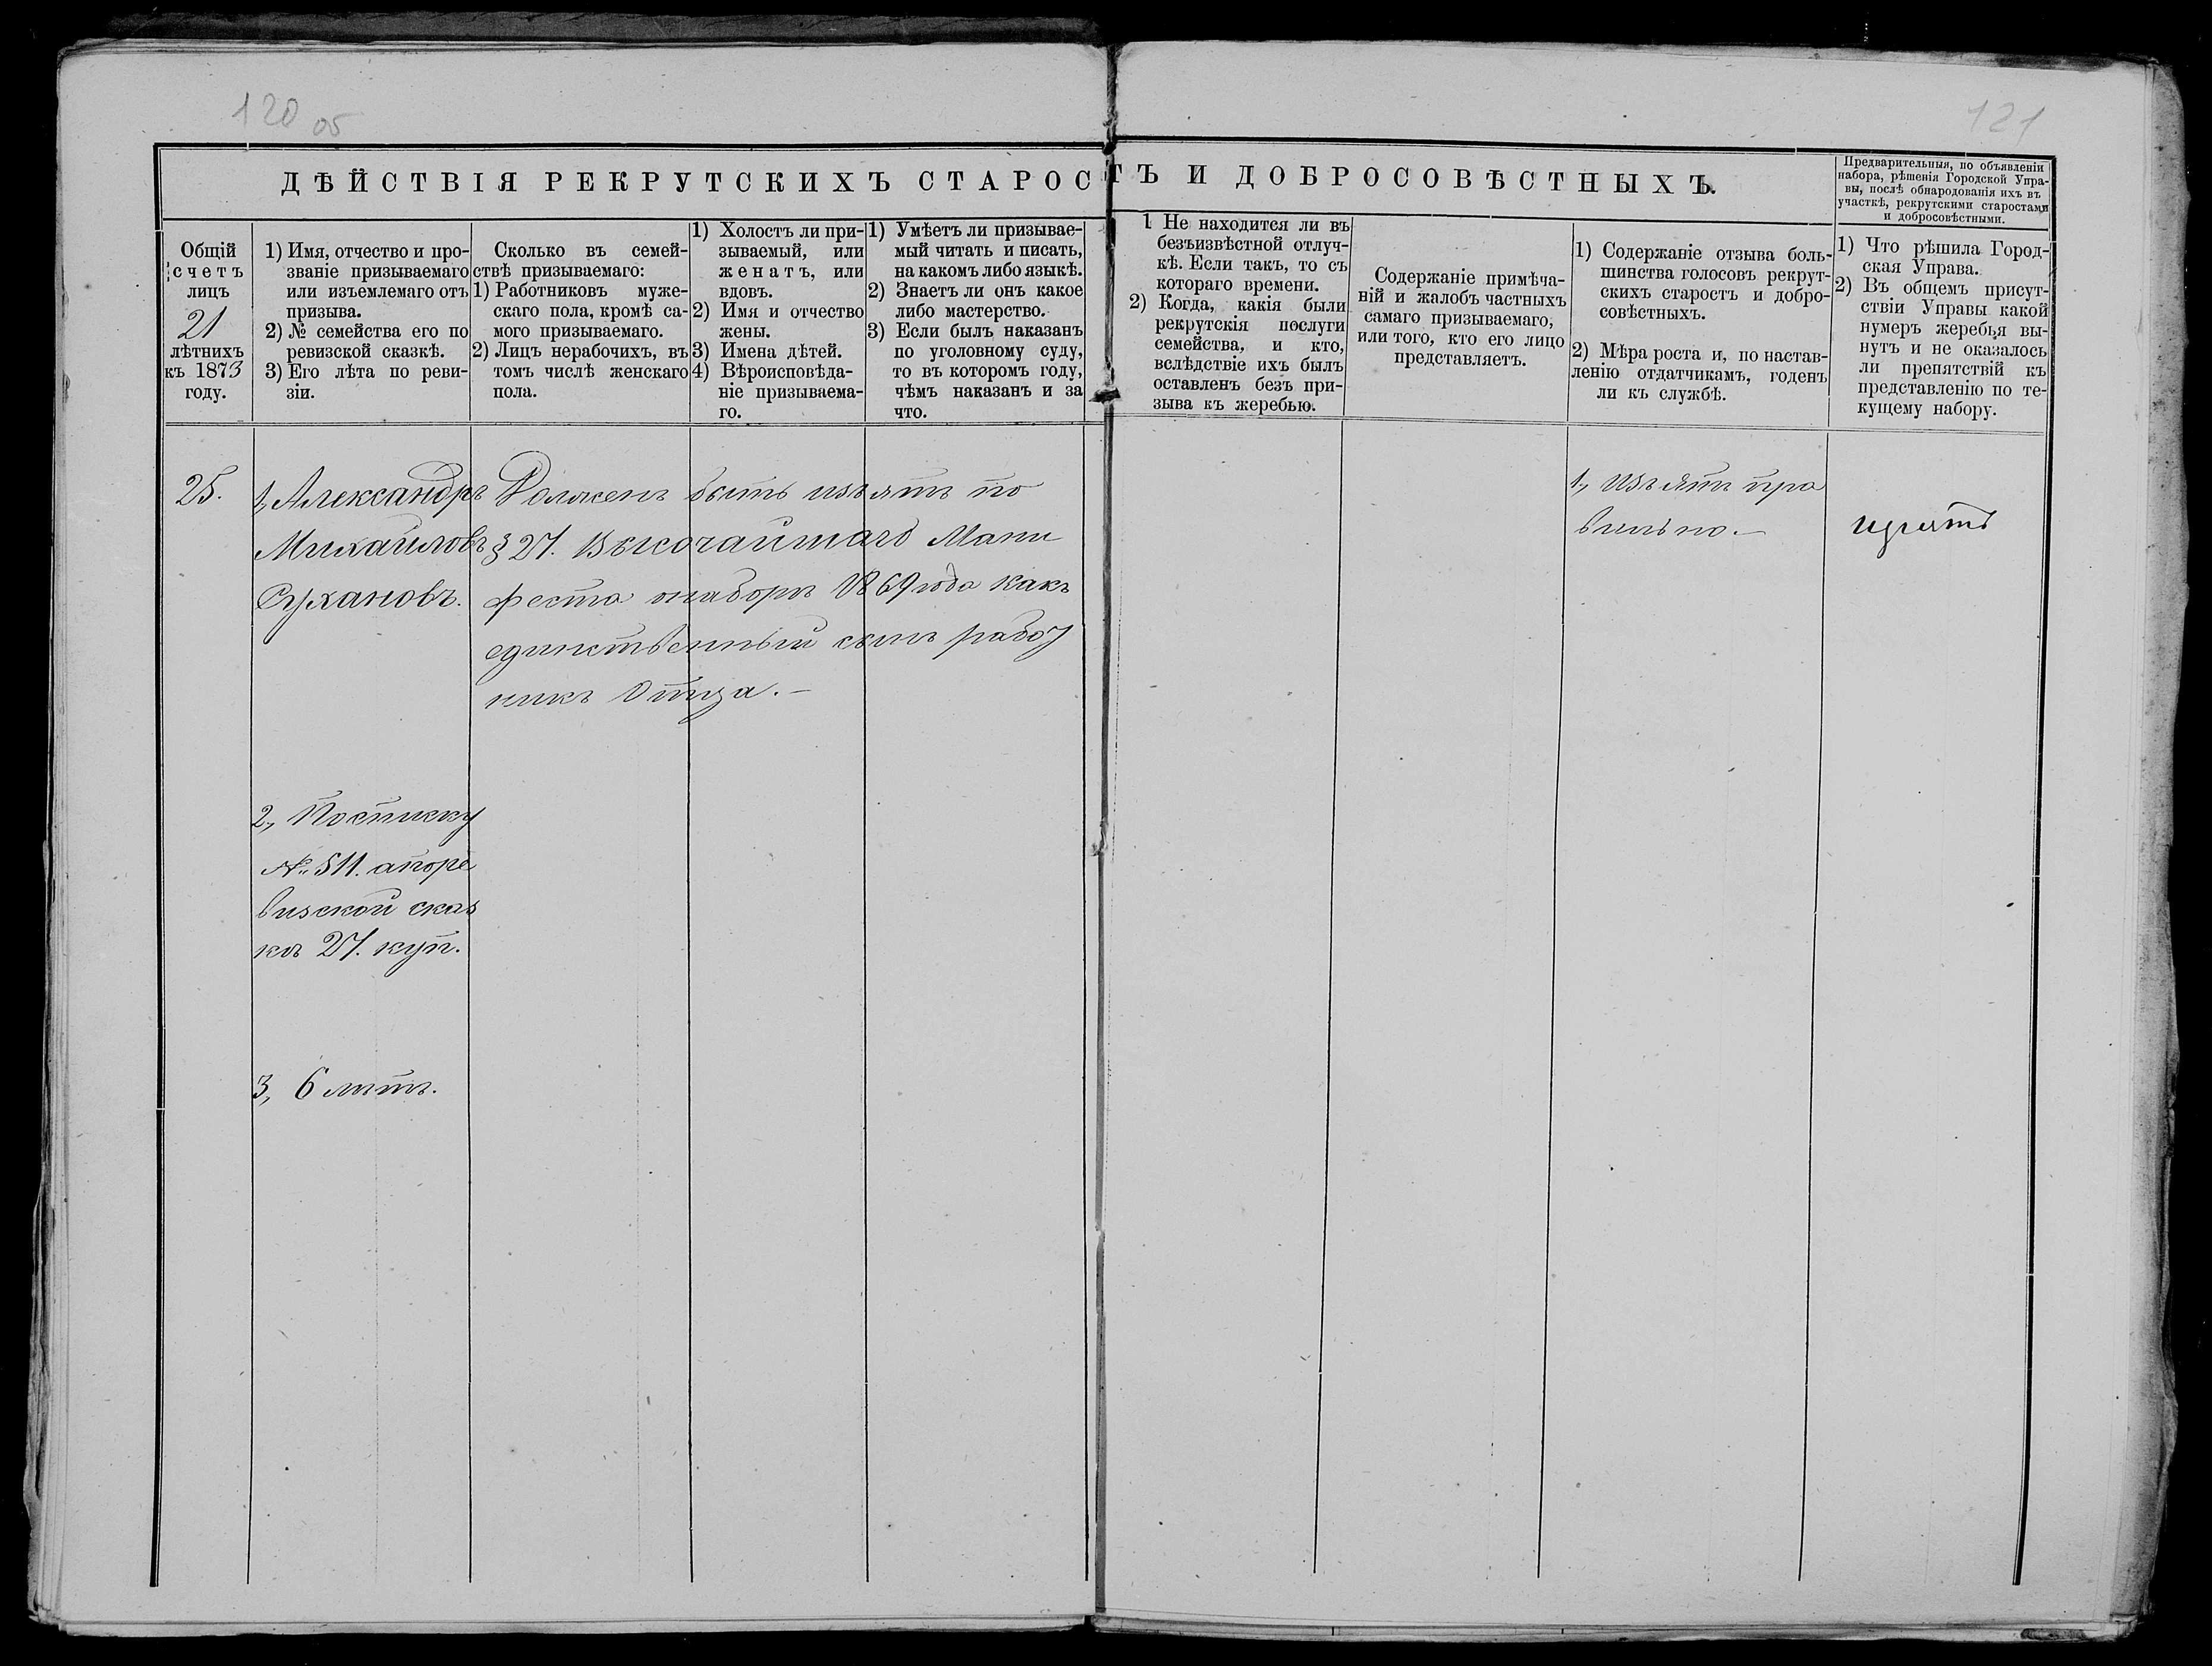 120 об
121
ДѢЙСТВІЯ РЕКРУТСКИХЪ СТАРОСТЪ И ДОБРОСОВѢСТНЫХЪ.
Предварительныя, по объявленіи
набора, рѣшенія Городской Упра-
вы, послѣ обнародованія ихъ въ
участкѣ, рекрутскими старостами
и добросовѣстными.
Общій
счетъ
лицъ
21
лѣтнихъ
къ 1873
году.
1) Имя, отчество и про-
званіе призываемаго
или изъемлемаго отъ
призыва.
2) № семейства его по
ревизской сказкѣ.
3) Его лѣта по реви-
зіи.
Сколько въ семей-
ствѣ призываемаго:
1) Работниковъ муже-
скаго пола, кромѣ са-
мого призываемаго.
2) Лицъ нерабочихъ, въ
томъ числѣ женскаго
пола.
1) Холостъ ли при-
зываемый, или
женатъ, или
вдовъ.
2) Имя и отчество
жены.
3) Имена дѣтей.
4) Вѣроисповѣда-
ніе призываема-
го.
1) Умѣетъ ли призывае-
мый читать и писать,
на какомъ либо языкѣ.
2) Знаетъ ли онъ какое
либо мастерство.
3) Если былъ наказанъ
по уголовному суду,
то въ которомъ году,
чѣмъ наказанъ и за
что.
1 Не находится ли въ
безъизвѣстной отлуч-
кѣ. Если такъ, то съ
котораго времени.
2) Когда, какія были
рекрутскія послуги
семейства, и кто,
вслѣдствіе ихъ былъ
оставленъ безъ при-
зыва къ жеребью.
Содержаніе примѣча-
ній и жалобъ частныхъ
самаго призываемаго,
или того, кто его лицо
представляетъ.
1) Содержаніе отзыва боль-
шинства голосовъ рекрут-
скихъ старостъ и добро-
совѣстныхъ.
2) Мѣра роста и, по настав-
ленію отдатчикамъ, годенъ
ли къ службѣ.
1) Что рѣшила Город-
ская Управа.
2) Въ общемъ присут-
ствіи Управы какой
нумеръ жеребья вы-
нутъ и не оказалось
ли препятствій къ
представленію по те-
кущему набору.
25.
1, Александръ
Михайловъ
Сухановъ.
Долженъ быть изъятъ по
§ 27. Высочайшаго Мани
феста о наборѣ 1869 года какъ
единственный сынъ работ
никъ Отца. —
1, Изъятъ пра
вильно. —
изъятъ
2, По списку
№ 511. а по ре
визской сказ
кѣ 27. куп.
3, 6 лѣтъ.